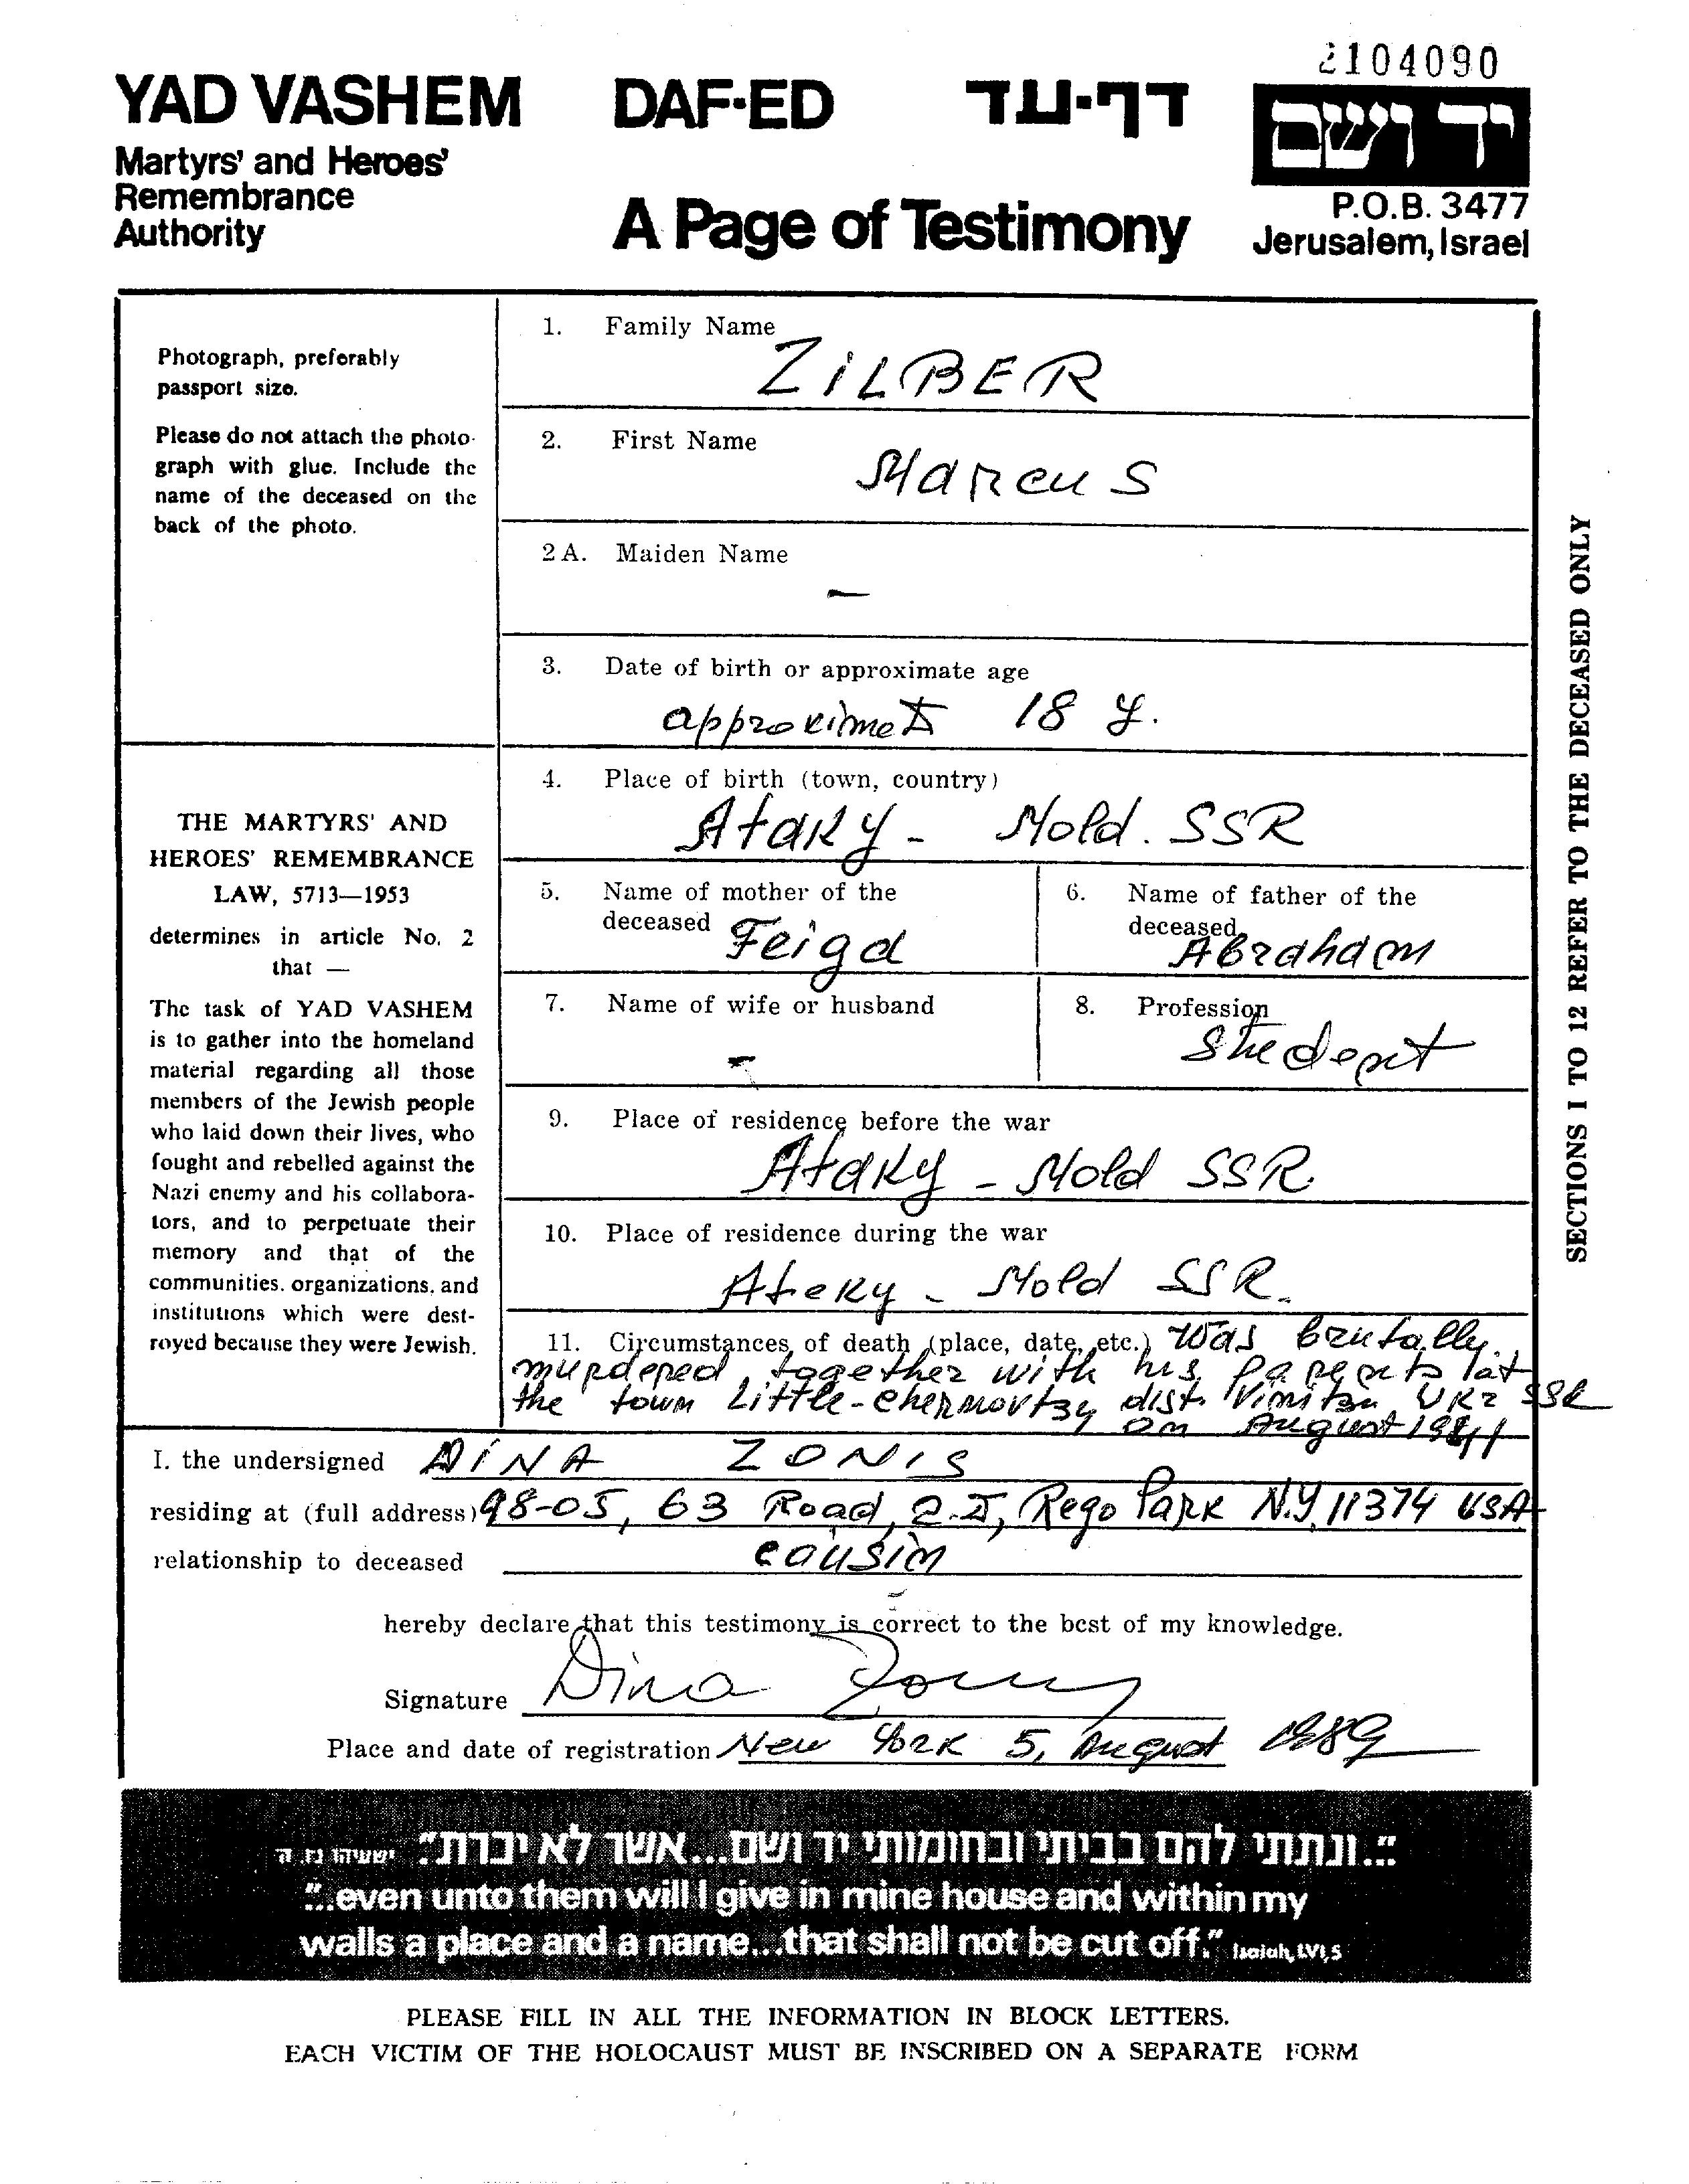 2104090
YAD VASHEM DAF-ED דף-עד יד ושם
Martyrs' and Heroes'
Remembrance
Authority
A Page of Testimony
P.O.B. 3477
Jerusalem, Israel
Photograph, preferably
passport size.
Please do not attach the photo-
graph with glue. Include the
name of the deceased on the
back of the photo.
THE MARTYRS' AND
HEROES' REMEMBRANCE
LAW, 5713—1953
determines in article No. 2
that —
The task of YAD VASHEM
is to gather into the homeland
material regarding all those
members of the Jewish people
who laid down their lives, who
fought and rebelled against the
Nazi enemy and his collabora-
tors, and to perpetuate their
memory and that of the
communities, organizations, and
institutions which were dest-
royed because they were Jewish.
1. Family Name
ZiLBER
2. First Name
Marcus
2A. Maiden Name
—
3. Date of birth or approximate age
approximet 18 y.
4. Place of birth (town, country)
Ataky - Mold. SSR
5. Name of mother of the
deceased Feiga
6. Name of father of the
deceased Abraham
7. Name of wife or husband
-
8. Profession
Student
9. Place of residence before the war
Ataky - Mold SSR
10. Place of residence during the war
Ataky - Mold SSR.
11. Circumstances of death (place, date, etc.) Was brutally
murdered together with his parents at
the town Little-Chernovtzy dist. Vinitza UKR SSR
on August 1941
SECTIONS 1 TO 12 REFER TO THE DECEASED ONLY
I. the undersigned DiNA ZONIS
residing at (full address) 98-05, 63 Road, 2-J, Rego Park N.Y. 11374 USA
relationship to deceased cousin
hereby declare that this testimony is correct to the best of my knowledge.
Signature Dina Zonis
Place and date of registration New York 5, August 1989
"...ונתתי להם בביתי ובחומותי יד ושם...אשר לא יכרת" ישעיהו נו, ה
"...even unto them will I give in mine house and within my
walls a place and a name...that shall not be cut off." Isaiah, LVI, 5
PLEASE FILL IN ALL THE INFORMATION IN BLOCK LETTERS.
EACH VICTIM OF THE HOLOCAUST MUST BE INSCRIBED ON A SEPARATE FORM